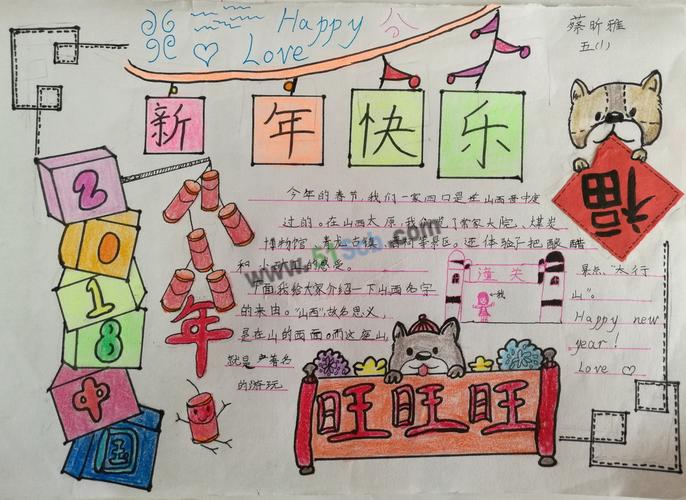 Happy
Love
蔡昕雅
五(1)
新年快乐
2018中国
年
福
今年的春节,我们一家四口是在山西
过的。在山西太原,我们
常家大院、煤炭
博物馆、青龙古镇
景区。还体验了把酿醋
和
的感受。
下面我给大家介绍一下山西名字
的来由。“山西”,故名思义,
是在山的西面。而这座山
就是
著名
的游玩
景点“太行
山”。
Happy new
year!
Love
潼关
我
旺旺旺
www.51scb.com